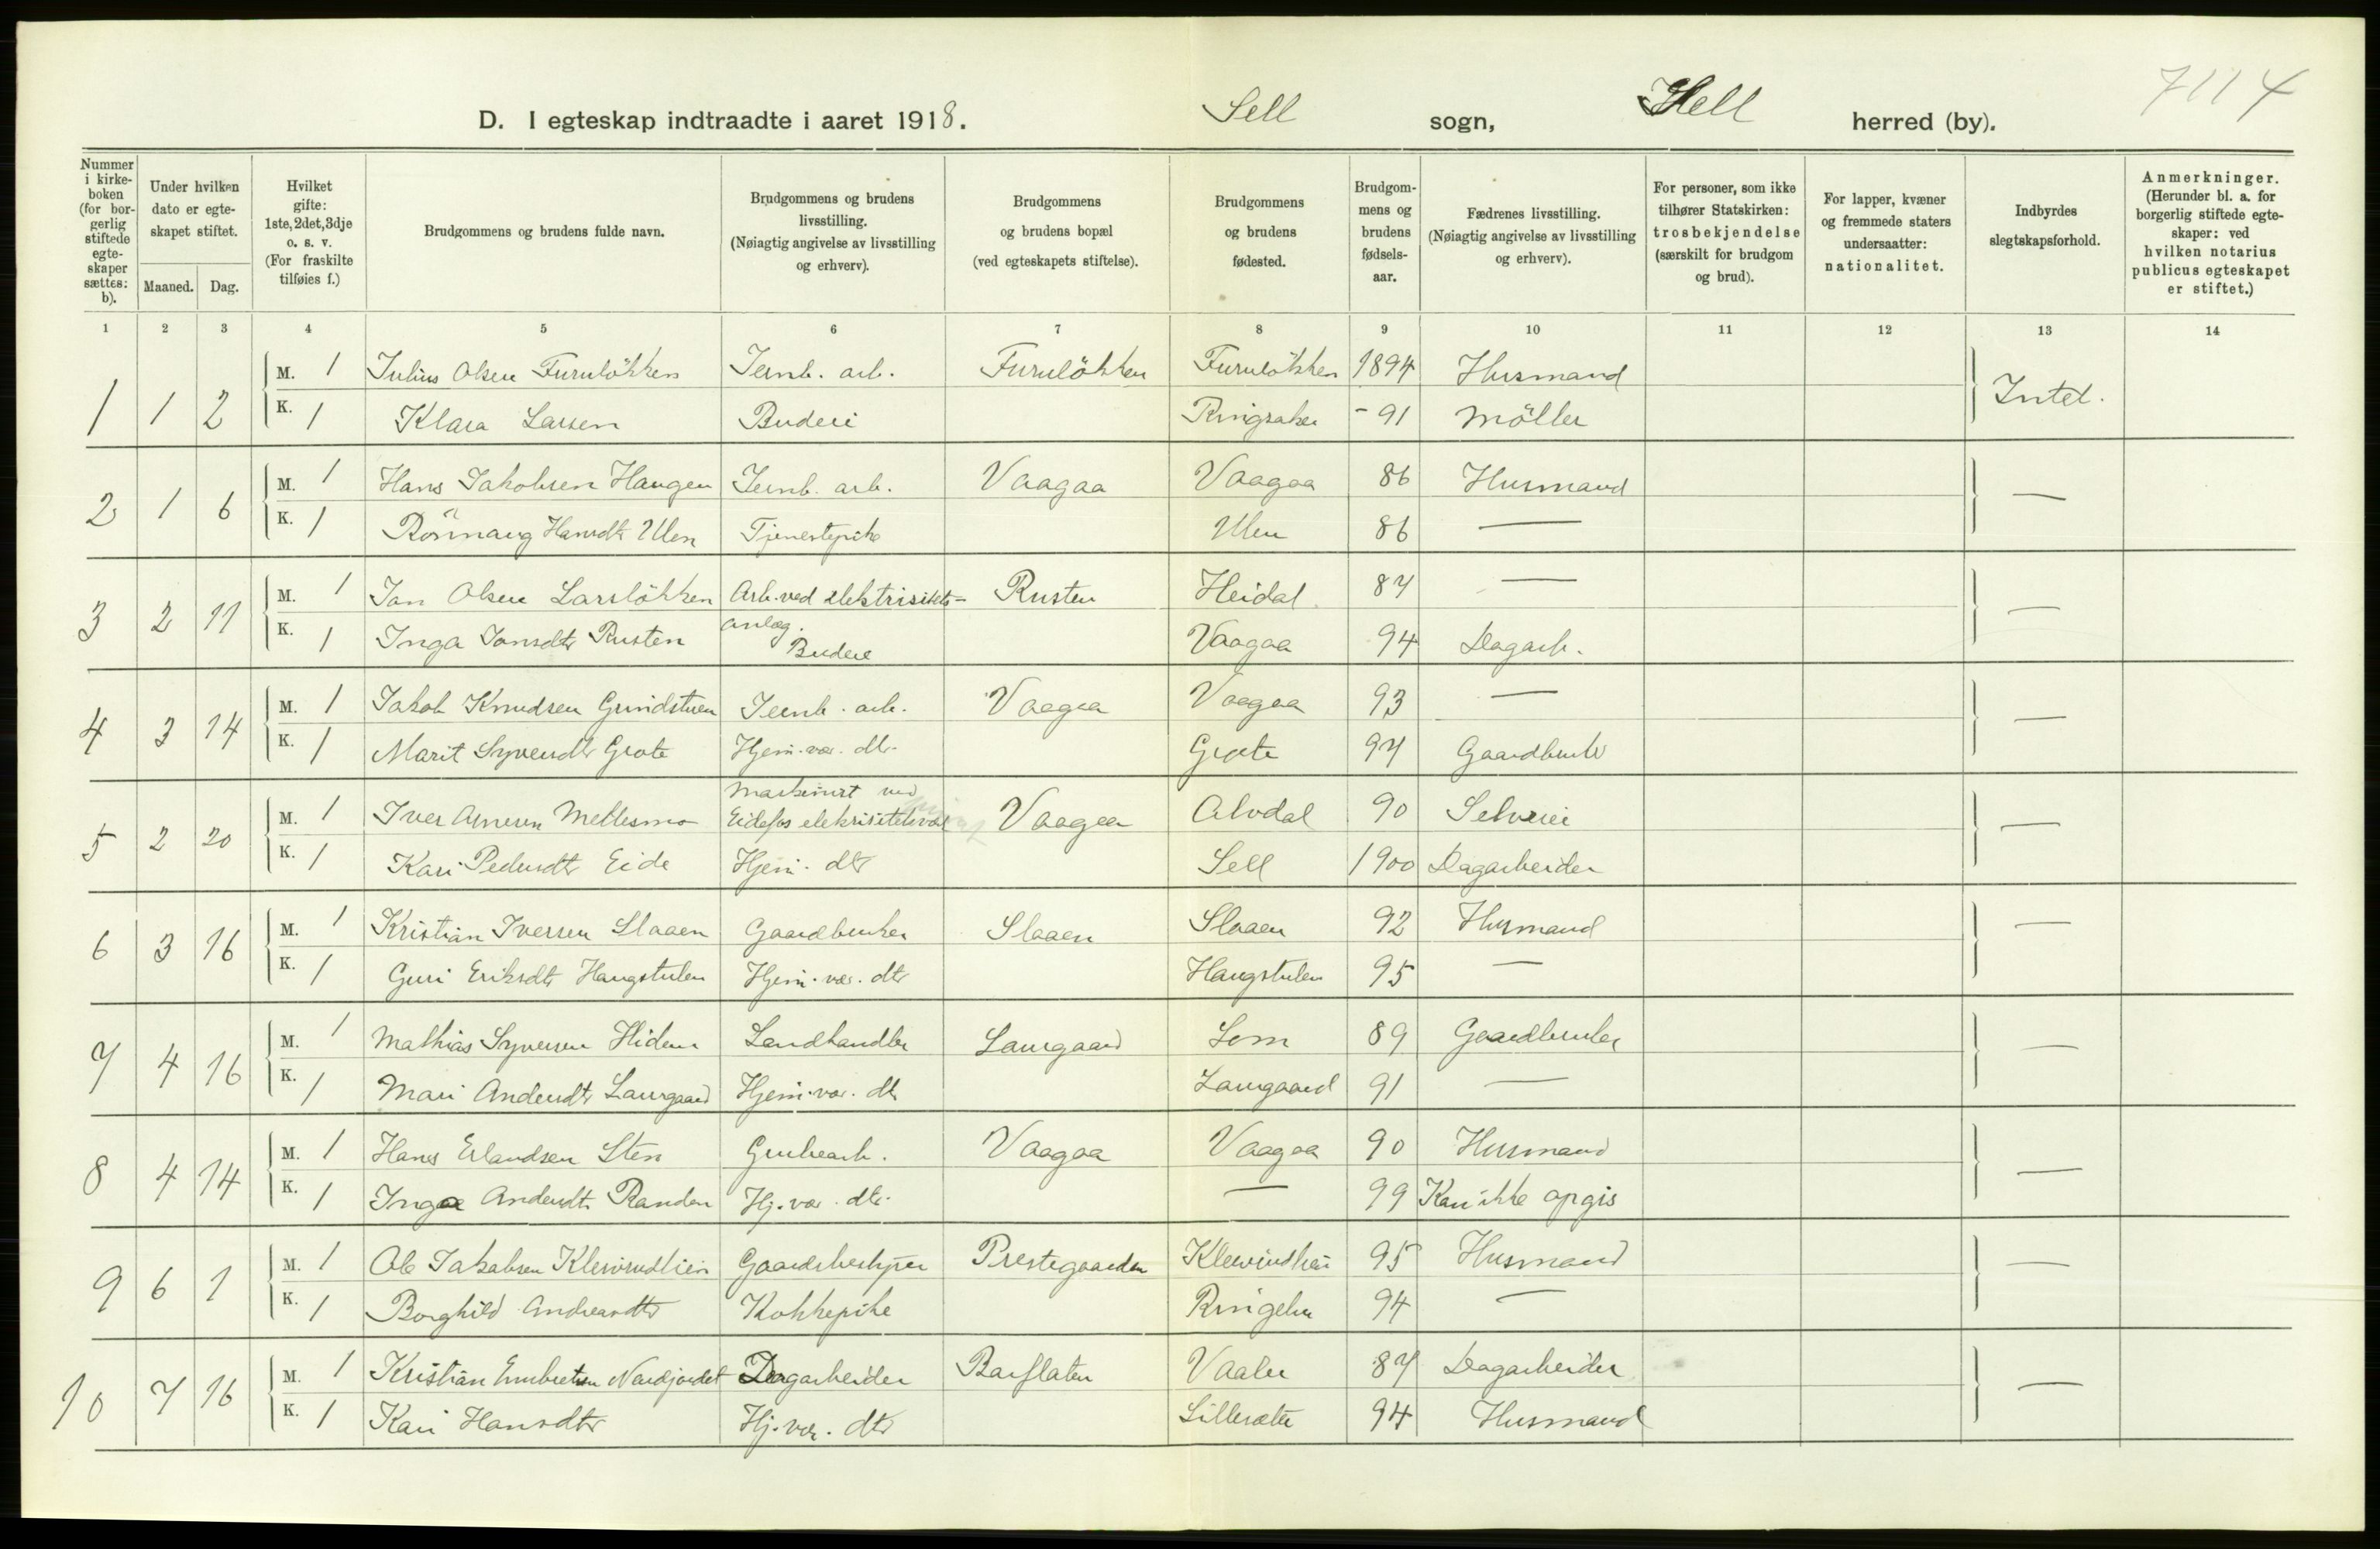 7114
D. I egteskap indtraadte i aaret 1918. Sell sogn, Sell herred (by).
Nummer i kirke-boken (for bor-gerlig stiftede egte-skaper sættes: b).
Under hvilken dato er egte-skapet stiftet.
Maaned. Dag.
Hvilket gifte: 1ste, 2det, 3dje o. s. v. (For fraskilte tilføies f.)
Brudgommens og brudens fulde navn.
Brudgommens og brudens livsstilling. (Nøiagtig angivelse av livsstilling og erhverv).
Brudgommens og brudens bopæl (ved egteskapets stiftelse).
Brudgommens og brudens fødested.
Brudgom-mens og brudens fødsels-aar.
Fædrenes livsstilling. (Nøiagtig angivelse av livsstilling og erhverv).
For personer, som ikke tilhører Statskirken: trosbekjendelse (særskilt for brudgom og brud).
For lapper, kvæner og fremmede staters undersaatter: nationalitet.
Indbyrdes slegtskapsforhold.
Anmerkninger. (Herunder bl. a. for borgerlig stiftede egte-skaper: ved hvilken notarius publicus egteskapet er stiftet.)
1 2 3 4 5 6 7 8 9 10 11 12 13 14
1 1 2 M. 1 Julius Olsen Furulökken Jernb. arb. Furulökken Furulökken 1894 Husmand Intet.
K. 1 Klara Larsen Budeie Ringsaker - 91 Möller
2 1 6 M. 1 Hans Jakobsen Haugen Jernb. arb. Vaagaa Vaagaa 86 Husmand —
K. 1 Rönnaug Hansdtr Ulen Tjenestepike Ulen 86 —
3 2 11 M. 1 Jan Olsen Larslökken Arb. ved elektrisitets- Rusten Heidal 87 — —
anlæg.
K. 1 Inga Jonsdtr Rusten Budeie Vaagaa 94 Dagarb.
4 3 14 M. 1 Jakob Knudsen Grindstuen Jernb. arb. Vaagaa Vaagaa 93 — —
K. 1 Marit Syverdtr Grote Hjem. vær. dtr. Grote 97 Gaardbruker
5 2 20 M. 1 Iver Arnesen Mellesmo Maskinist ved Eidefos elekrisitetsværk Vaagaa Alvdal 90 Selveiei —
K. 1 Kari Pedersdtr Eide Hjem. dtr Sell 1900 Dagarbeider
6 3 16 M. 1 Kristian Iversen Slaaen Gaardbruker Slaaen Slaaen 92 Husmand —
K. 1 Guri Eriksdtr Haugstulen Hjem. vær. dtr Haugstulen 95 —
7 4 16 M. 1 Mathias Syversen Hidem Landhandler Laurgaard Lom 89 Gaardbruker —
K. 1 Mari Andersdtr Laurgaard Hjem. vær. dtr Laurgaard 91 —
8 4 14 M. 1 Hans Erlandsen Sten Grubearb. Vaagaa Vaagaa 90 Husmand —
K. 1 Inga Andersdtr Randen Hj. vær. dtr. — 99 Kan ikke opgis
9 6 1 M. 1 Ole Jakobsen Klevrudlien Gaardsbestyrer Prestegaarden 95 Husmand —
K. 1 Borghild Andreasdtr Kokkepike Ringebu 94 —
10 7 16 M. 1 Kristian Embretsen Nordjordet Dagarbeider Barflaten Vaaler 87 Dagarbeider —
K. 1 Kari Hansdtr Hj. vær. dtr Lillesæter 94 Husmand